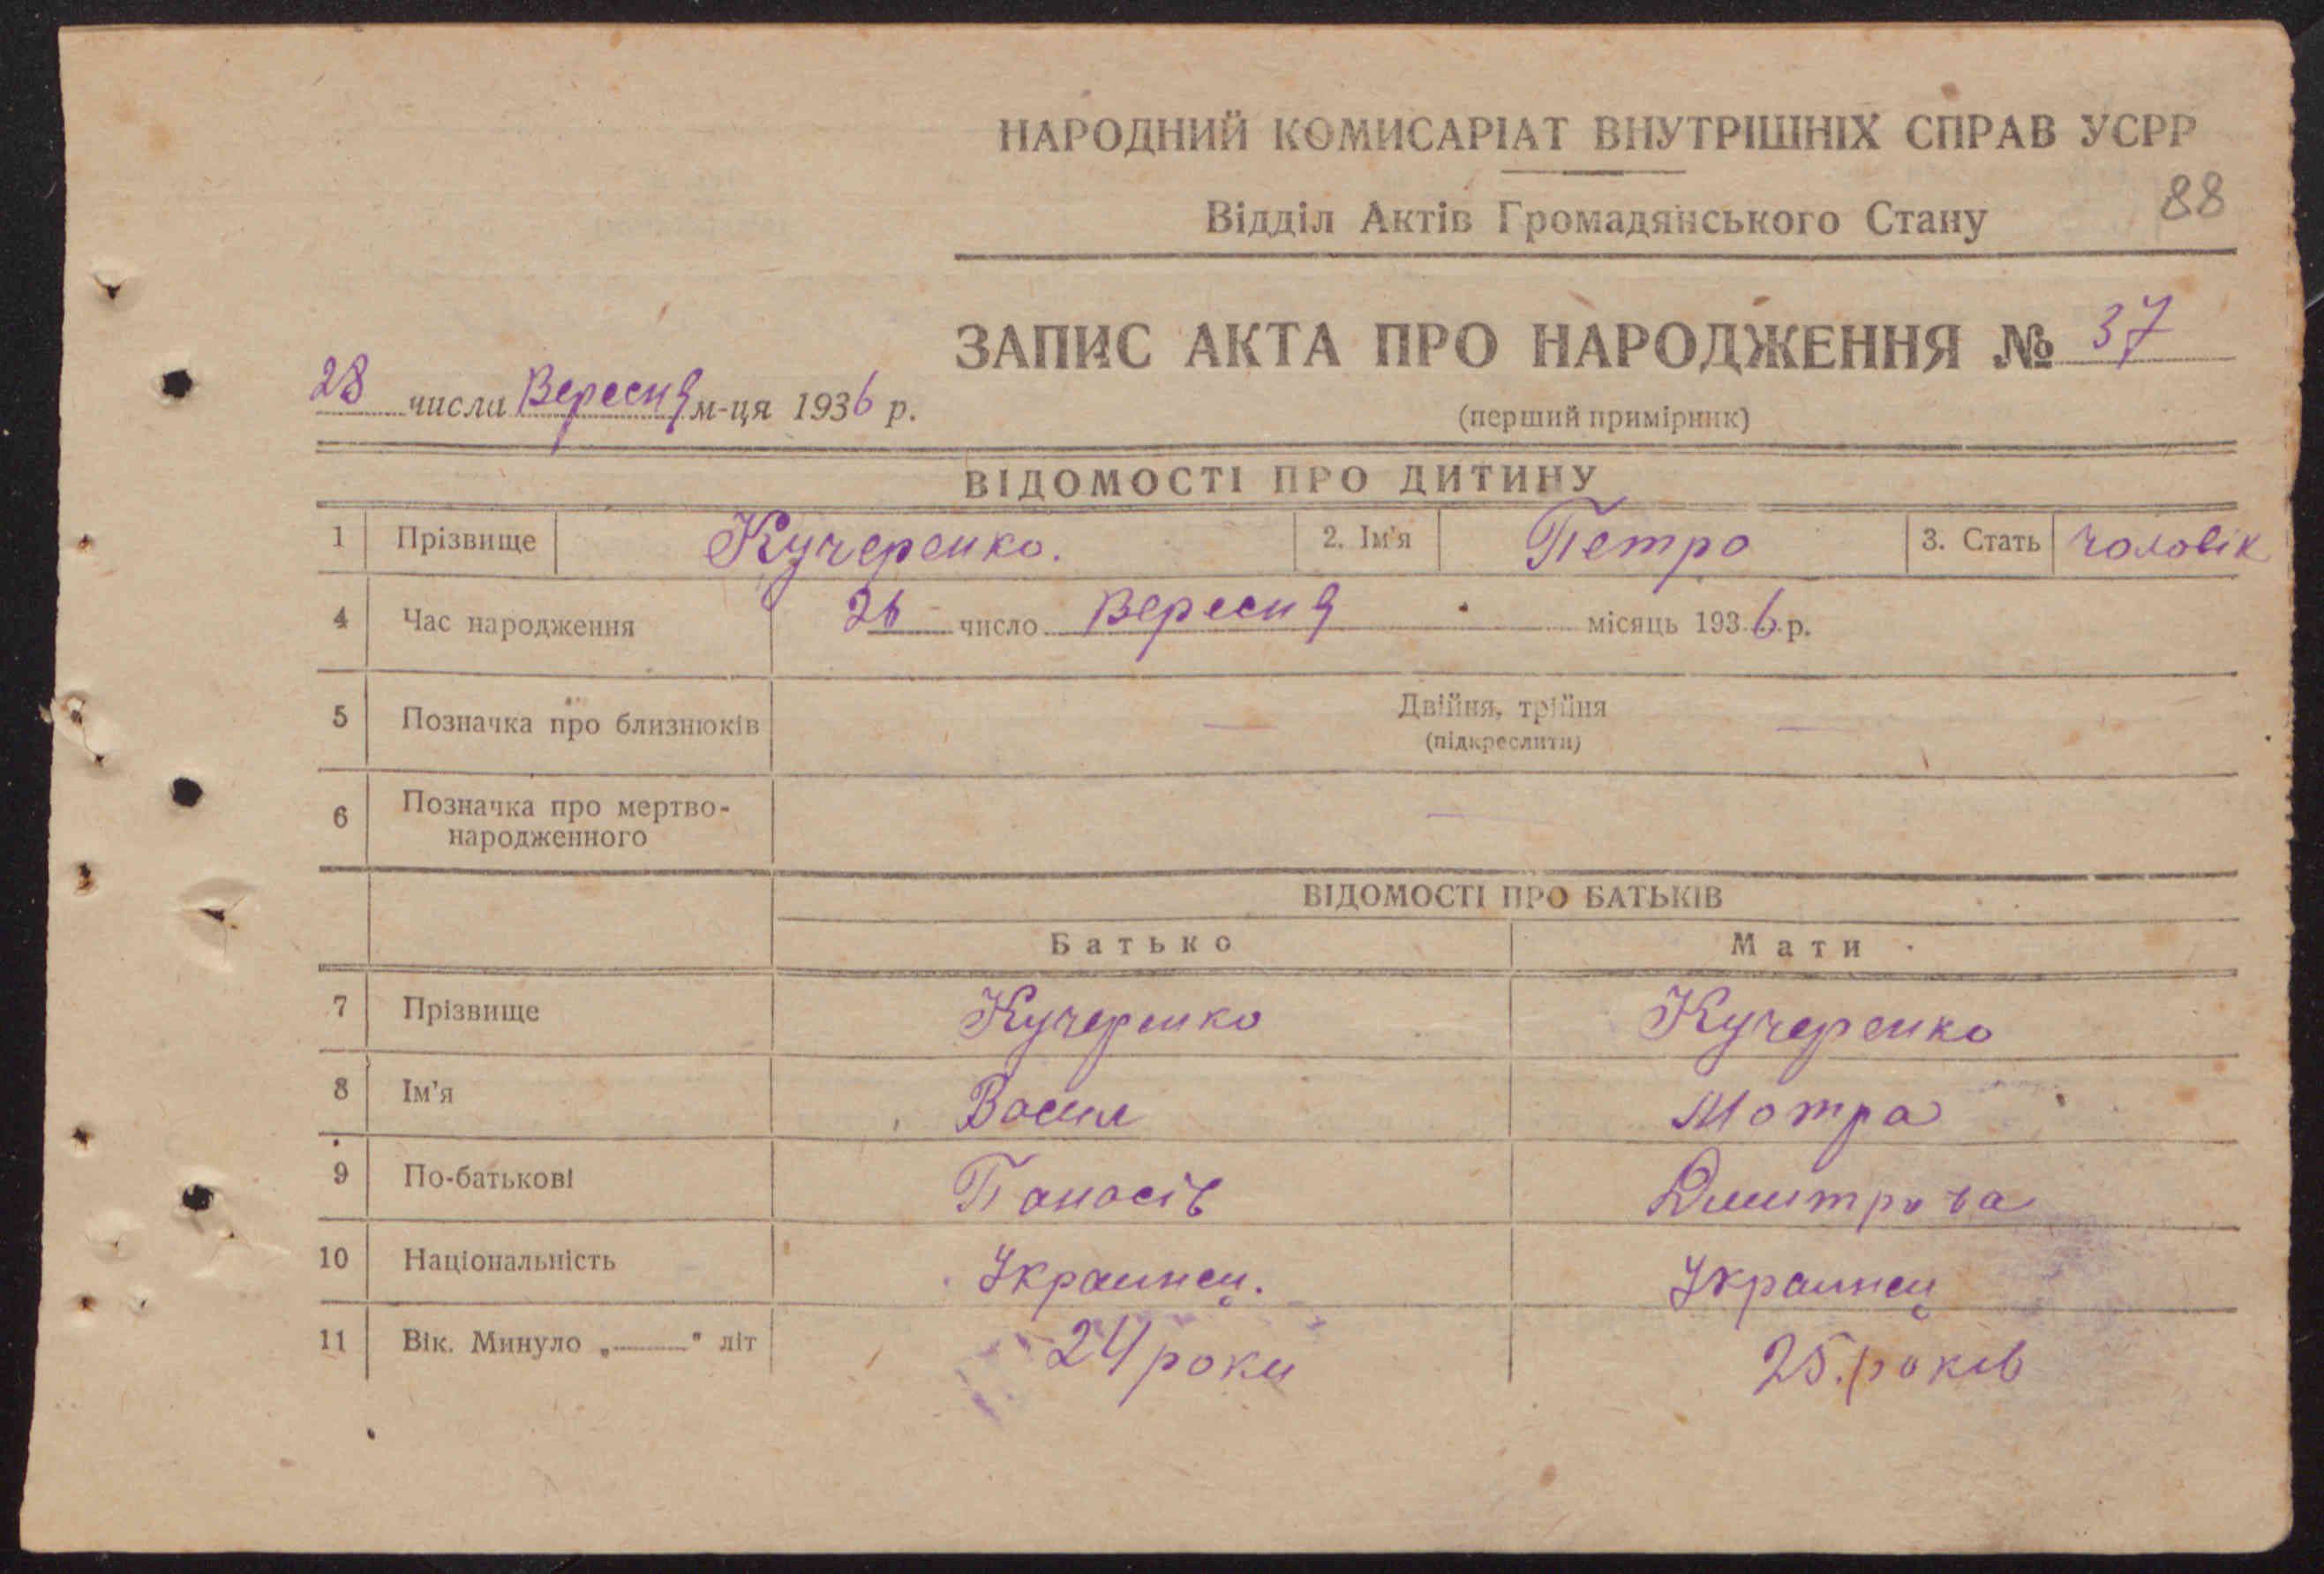 НАРОДНИЙ КОМИСАРІАТ ВНУТРІШНІХ СПРАВ УСРР
Відділ Актів Громадянського Стану 88
ЗАПИС АКТА ПРО НАРОДЖЕННЯ № 37
28 числа Вересня м-ця 1936 р.
(перший примірник)
ВІДОМОСТІ ПРО ДИТИНУ
1 Прізвище Кучеренко. 2. Ім'я Петро 3. Стать чоловік
4 Час народження 26 число Вересня місяць 1936 р.
5 Позначка про близнюків — Двійня, трійня —
(підкреслити)
6 Позначка про мертво-
народженного —
ВІДОМОСТІ ПРО БАТЬКІВ
Батько Мати
7 Прізвище Кучеренко Кучеренко
8 Ім'я Васил Мотра
9 По-батькові Панасів Дмитрова
10 Національність Украинец. Украинец
11 Вік. Минуло „———" літ 24 роки 25. років